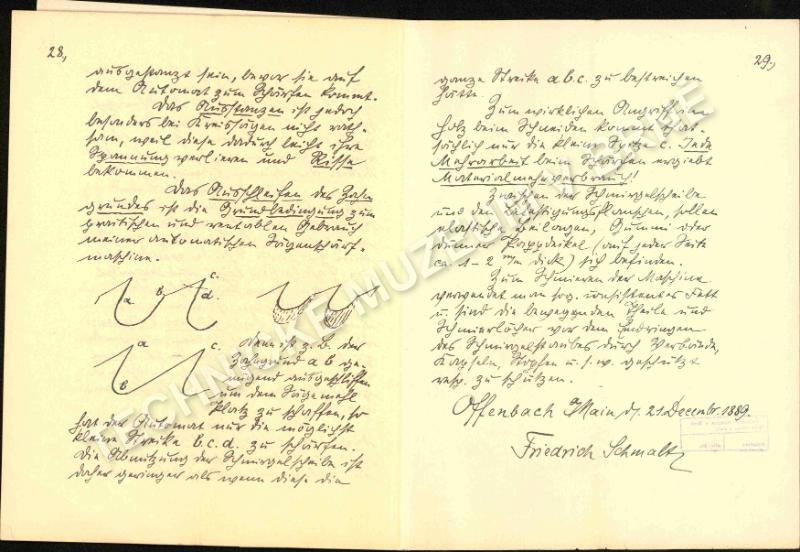 28,
ausgestanzt sein, bevor sie auf
dem Automat zum Schärfen kommt.
Das Ausstanzen ist jedoch
besonders bei Kreissägen nicht rath-
sam, weil diese dadurch leicht ihre
Spannung verlieren und Risse
bekommen.
Das Ausschleifen des Zahn
grundes ist die Grundbedingung zum
practischen und rentablen Gebrauch
meiner automatischen Sägenschärf-
maschine.
a b c. d.
a b c.
Denn ist z. B. der
Zahngrund a b ge-
nügend ausgeschliffen
um dem Sägemehl
Platz zu schaffen, so
hat der Automat nur die möglichst
kleine Strecke b.c.d. zu schärfen.
Die Abnützung der Schmirgelscheibe ist
daher geringer als wenn diese die
29.,
ganze Strecke a b c. zu bestreichen
hätte.
Zum wirklichen Angriff im
Holz beim Schneiden kommt that-
sächlich nur die kleine Spitze c. Jede
Mehrarbeit beim Schärfen ergiebt
Materialmehrverbrauch!
Zwischen der Schmirgelscheibe
und den Befestigungsflanschen, sollen
elastische Beilagen, Gummi oder
dünner Pappdeckel (auf jeder Seite
ca. 1–2 m/m dick) sich befinden.
Zum Schmieren der Maschine
verwendet man sog. consistentes Fett
u. sind die bewegenden Theile und
Schmierlöcher vor dem Eindringen
des Schmirgelstaubes durch Verbände,
Kapseln, Stopfen u. s. w. geschützt
resp. zu schützen.
Offenbach a/Main d/ 21 Decembr. 1889.
Friedrich Schmaltz
TECHNICKÉ MUZEUM V BRNĚ